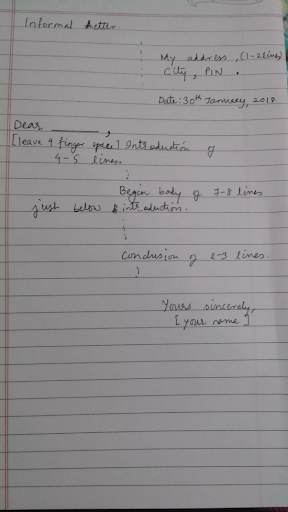 Informal Letter.
My address, (1-2 lines)
City, PIN.
Date: 30th January, 2018
Dear ______,
[leave 4 finger space] Introduction of
4-5 lines.
Begin body of 7-8 lines
just below introduction.
Conclusion of 2-3 lines.
Yours sincerely,
[your name]